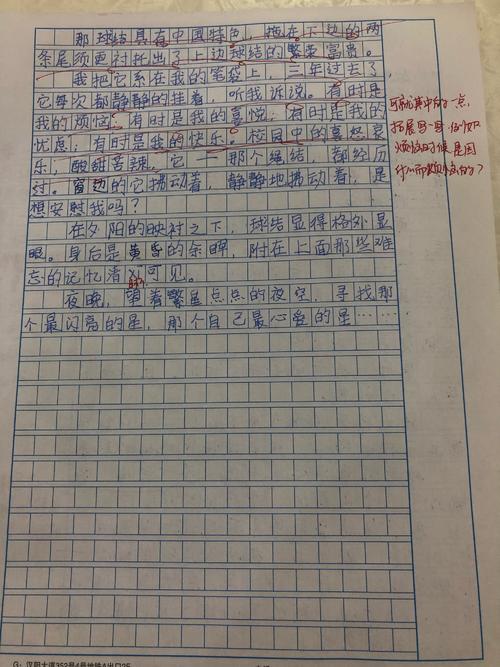 那球结具有中国特色，拖在下边的两
条尾须更衬托出了上边球结的繁荣富贵。
我把它系在我的笔袋上，三年过去了，
它每次都静静的挂着，听我诉说。有时是
我的烦恼；有时是我的喜悦；有时是我的
忧虑；有时是我的快乐。校园中的喜怒哀
乐，酸甜苦辣，它——那个绳结，都经历
过。窗边的它拂动着，静静地拂动着，是
想安慰我吗？
在夕阳的映衬之下，球结显得格外显
眼。身后是黄昏的余晖，附在上面那些难
忘的记忆清晰可见。
夜晚，望着繁星点点的夜空，寻找那
个最闪亮的星，那个自己最心爱的星……
可就其中的一点，
拓展写一写，
烦恼的时候是因
什么而烦恼的？
汉阳大道352号4号地铁A出口2F